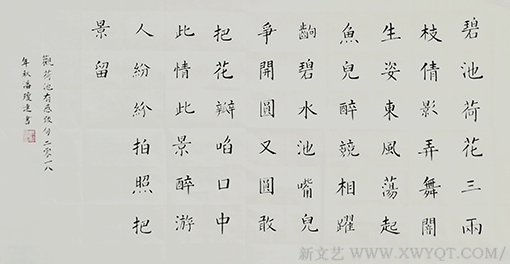 碧池荷花三兩
枝倩影弄舞闇
生姿東風蕩起
魚兒醉競相躍
齣碧水池嘴兒
爭開圓又圓敢
把花瓣啗口中
此情此景醉游
人紛紛拍照把
景留
觀荷池有感數句二零一八
年秋潘瓊連書
新文艺 WWW.XWYQT.COM/